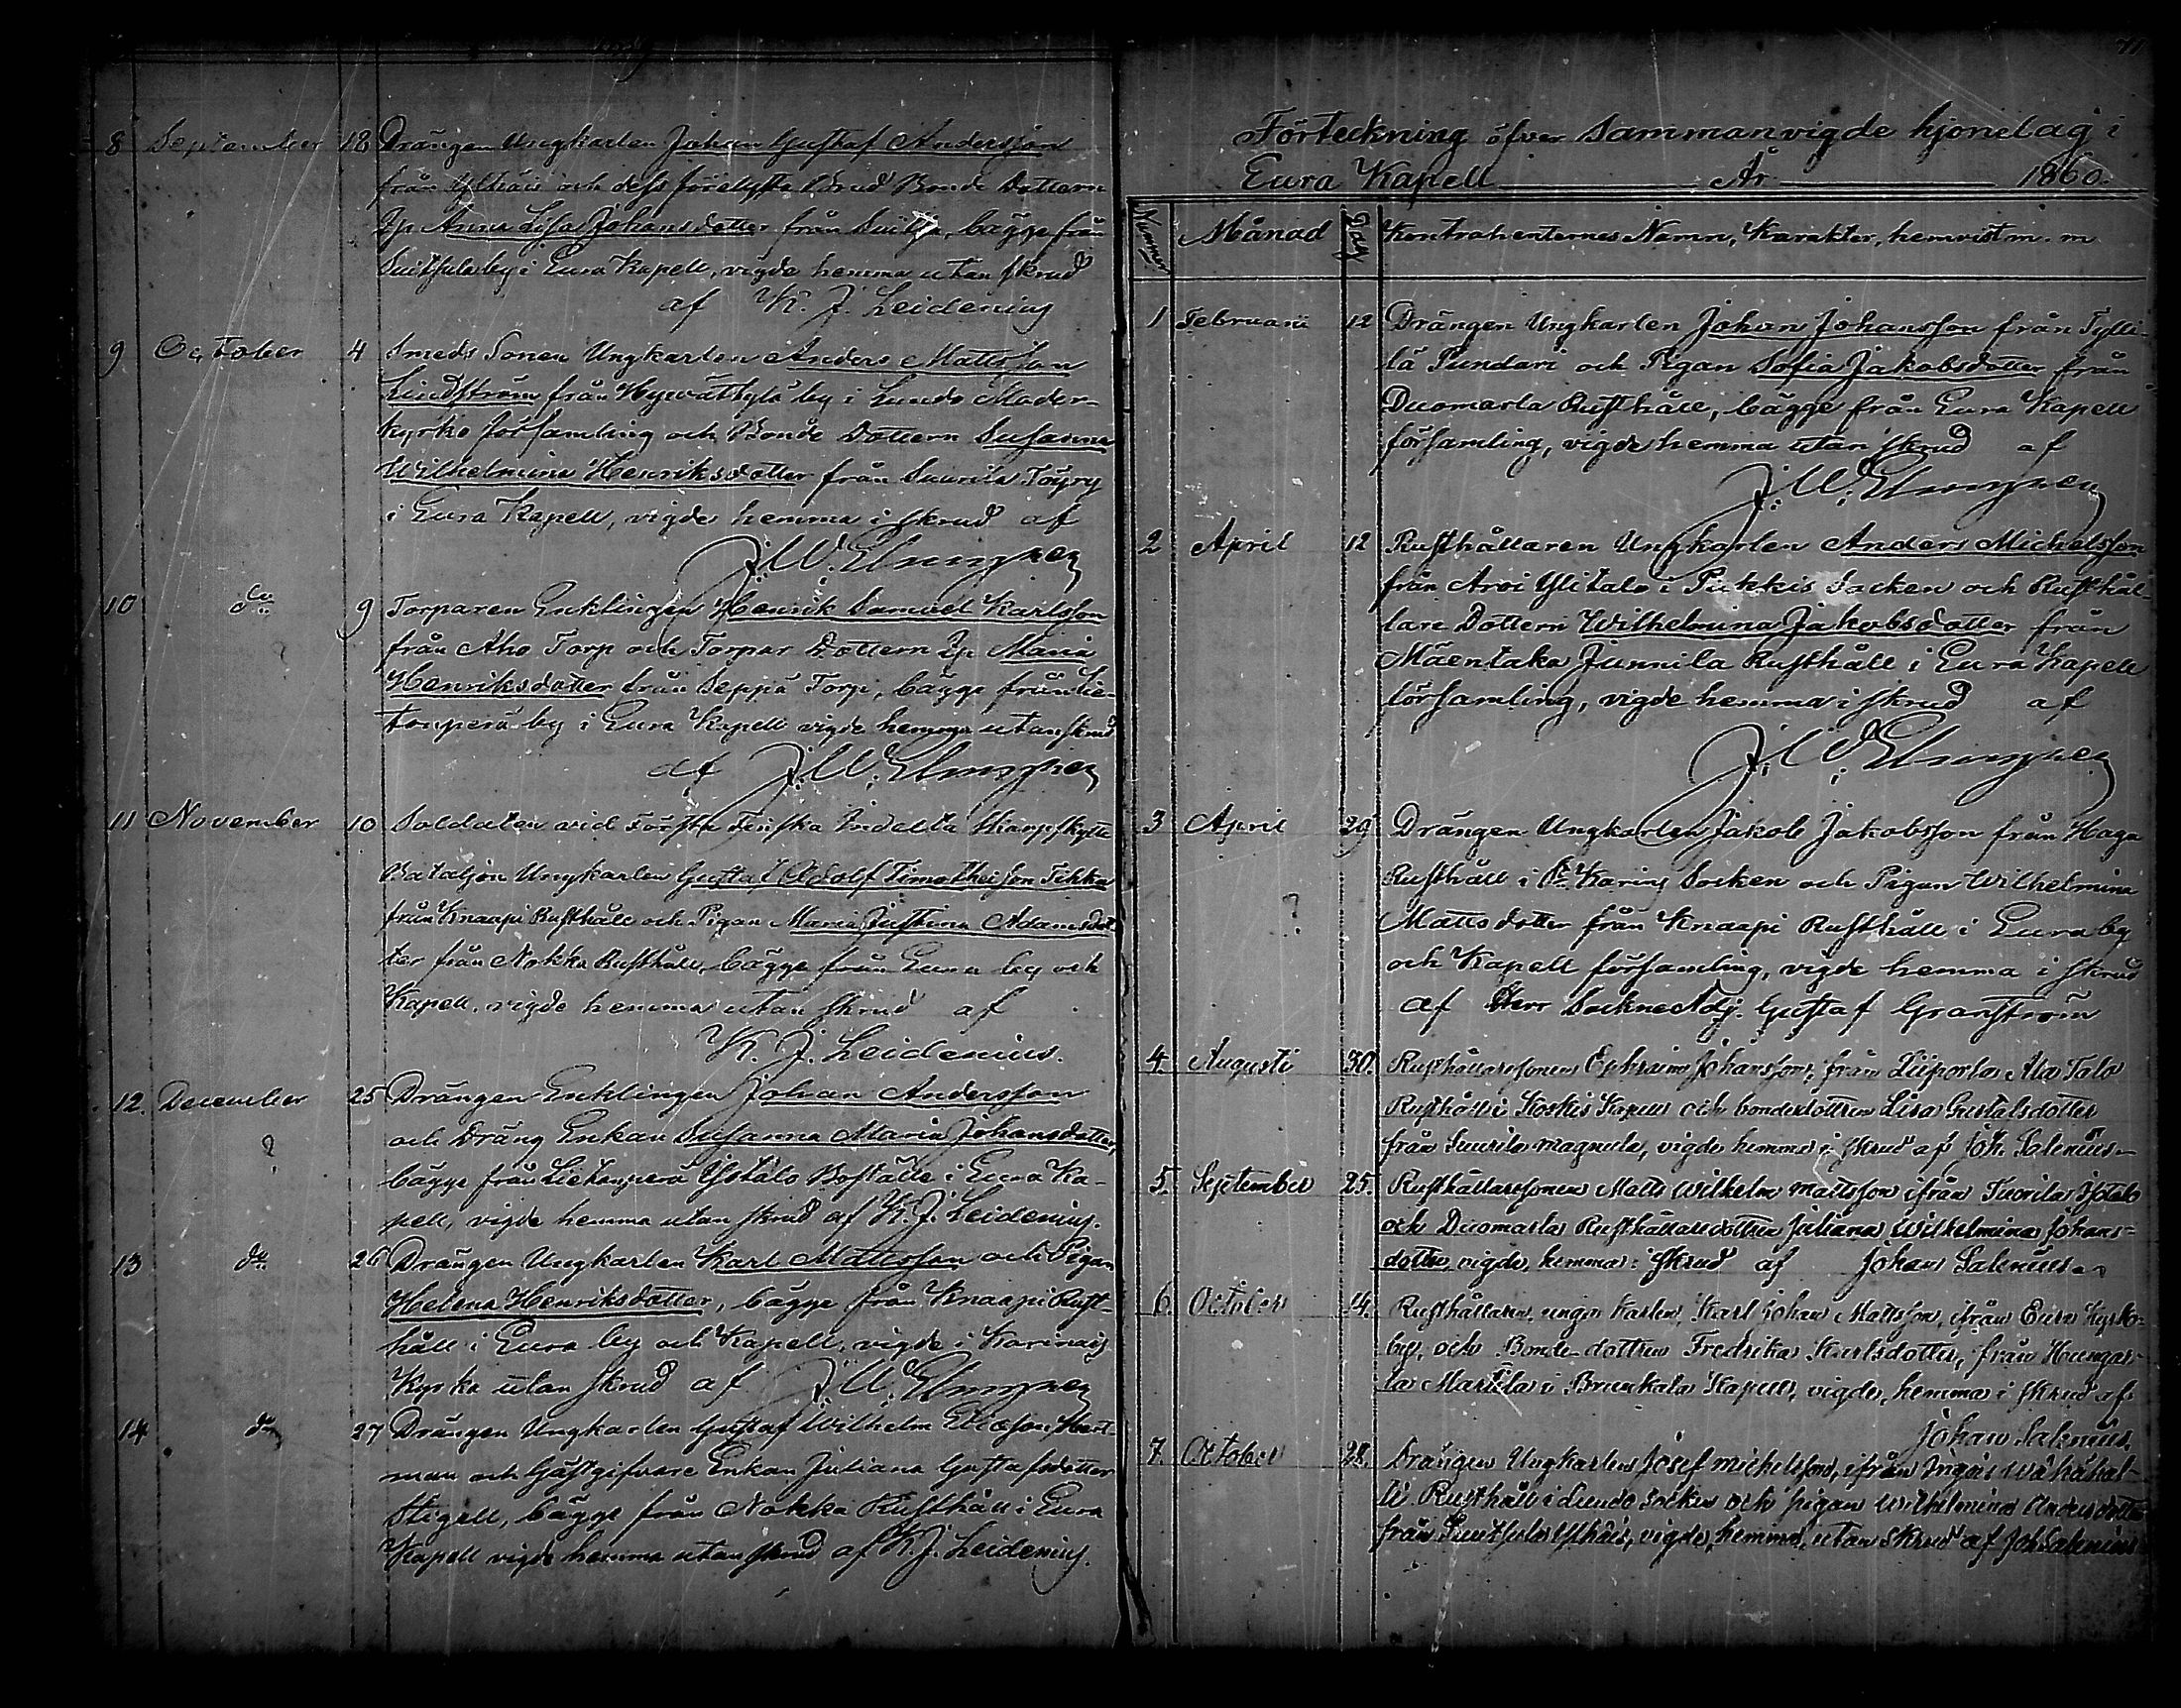 8 September 18 Drängen Ungkarlen Johan Gustaf Andersson
från Ylhäis och dess förelofta Brud Bonde Dottern
Jgfr Anna Lisa Johansdotter från bägge från
by i Eura Kapell, vigde hemma utan skrud
af K. J. Leidenius
9 October 4 Smeds Sonen Ungkarlen Anders Mattsson
Lindström från by i Lundo Moder-
kyrko församling och Bonde Dottern Susanna
Wilhelmina Henriksdotter från Suurila Töyry
i Eura Kapell, vigde hemma i skrud af
J. W. Elmgren
10 do 9 Torparen Enklingen Henrik Samuel Karlsson
från Aho Torp och Torpar Dottern Jgfr Maria
Henriksdotter från Seppä Torp, bägge från Lie-
tenperä by i Eura Kapell vigde hemma utan skrud
af J. W. Elmgren
11 November 10 Soldaten vid Första Finska Indelta Skarpskytte
Bataljon Ungkarlen Gustaf Adolf Timotheisson Tikka
från Knaapi Rusthåll och Pigan Maria Justina Adamsdot-
ter från Nokka Rusthåll, bägge från Eura by och
Kapell, vigde hemma utan skrud af
K. J. Leidenius.
12. December 25 Drängen Enklingen Johan Andersson
? och Dräng Enkan Susanna Maria Johansdotter,
bägge från Lietenperä Isotalo Boställe i Eura Ka-
pell, vigde hemma utan skrud af K. J. Leidenius.
13 do 26 Drängen Ungkarlen Karl Mattsson och Pigan
Helena Henriksdotter, bägge från Knaapi Rust-
håll i Eura by och Kapell, vigde i Karinais
Kyrka utan skrud af J. W. Elmgren
14 do 27 Drängen Ungkarlen Gustaf Wilhelm Eliasson Hert-
man och Gästgifvare Enkan Juliana Gustafsdotter
Stigell, bägge från Nokka Rusthåll i Eura
Kapell vigde hemma utan skrud af K. J. Leidenius.
71
Förteckning öfver Sammanvigde hjonelag i
Eura Kapell År 1860.
Nummer Månad Dag Kontrahenternes Namn, Karakter, hemvist m. m
1 Februarii 12 Drängen Ungkarlen Johan Johansson från Tylli-
lä Pundari och Pigan Sofia Jakobsdotter från
Duomarla Rusthåll, bägge från Eura Kapell
församling, vigde hemma utan skrud af
J. W. Elmgren
2 April 12 Rusthållaren Ungkarlen Anders Michelsson
från Arvi Ylitalo i Pikkis Socken och Rusthål-
lare Dottern Wilhelmina Jakobsdotter från
Mäentaka Junnila Rusthåll i Eura Kapell
församling, vigde hemma i skrud af
J. W. Elmgren
3 April 29 Drängen Ungkarlen Jakob Jakobsson från Haga
Rusthåll i St Karins Socken och Pigan Wilhelmina
? Matts dotter från Knaapi Rusthåll i Eura by
och Kapell församling, vigde hemma i skrud
af Herr SockneAdj. Gustaf Granström
4. Augusti 30. Rusthållaresonen Ephraim Johansson, från Liipola Ala Talo
Rusthåll i Koskis Kapell och bondedottren Lisa Gustafsdotter
från Suurila magnula, vigde hemma i skrud af Joh. Salenius.
5. September 25. Rusthållaresonen Matts Wilhelm Mattsson ifrån Tuorila Isotalo
och Duomarla Rusthållaredottren Juliana Wilhelmina Johans-
dotter vigde, hemma i skrud af Johan Salenius.
6 October 14. Rusthållaren, unga Karlen, Karl Johan Mattsson, ifrån Eura Kyrko-
by, och Bonde-dottren Fredrika Karlsdotter, från
la Marttila i Brunkala Kapell, vigde, hemma i skrud af
Johan Salenius.
7. October 28. Drängen Ungkarlen Josef Michelsson, ifrån Ingois Wähähal-
li Rusthåll i Lundo Socken och pigan Wilhelmina Andersdotter
från Ylhäis, vigde, hemma, utan skrud af Joh Salenius